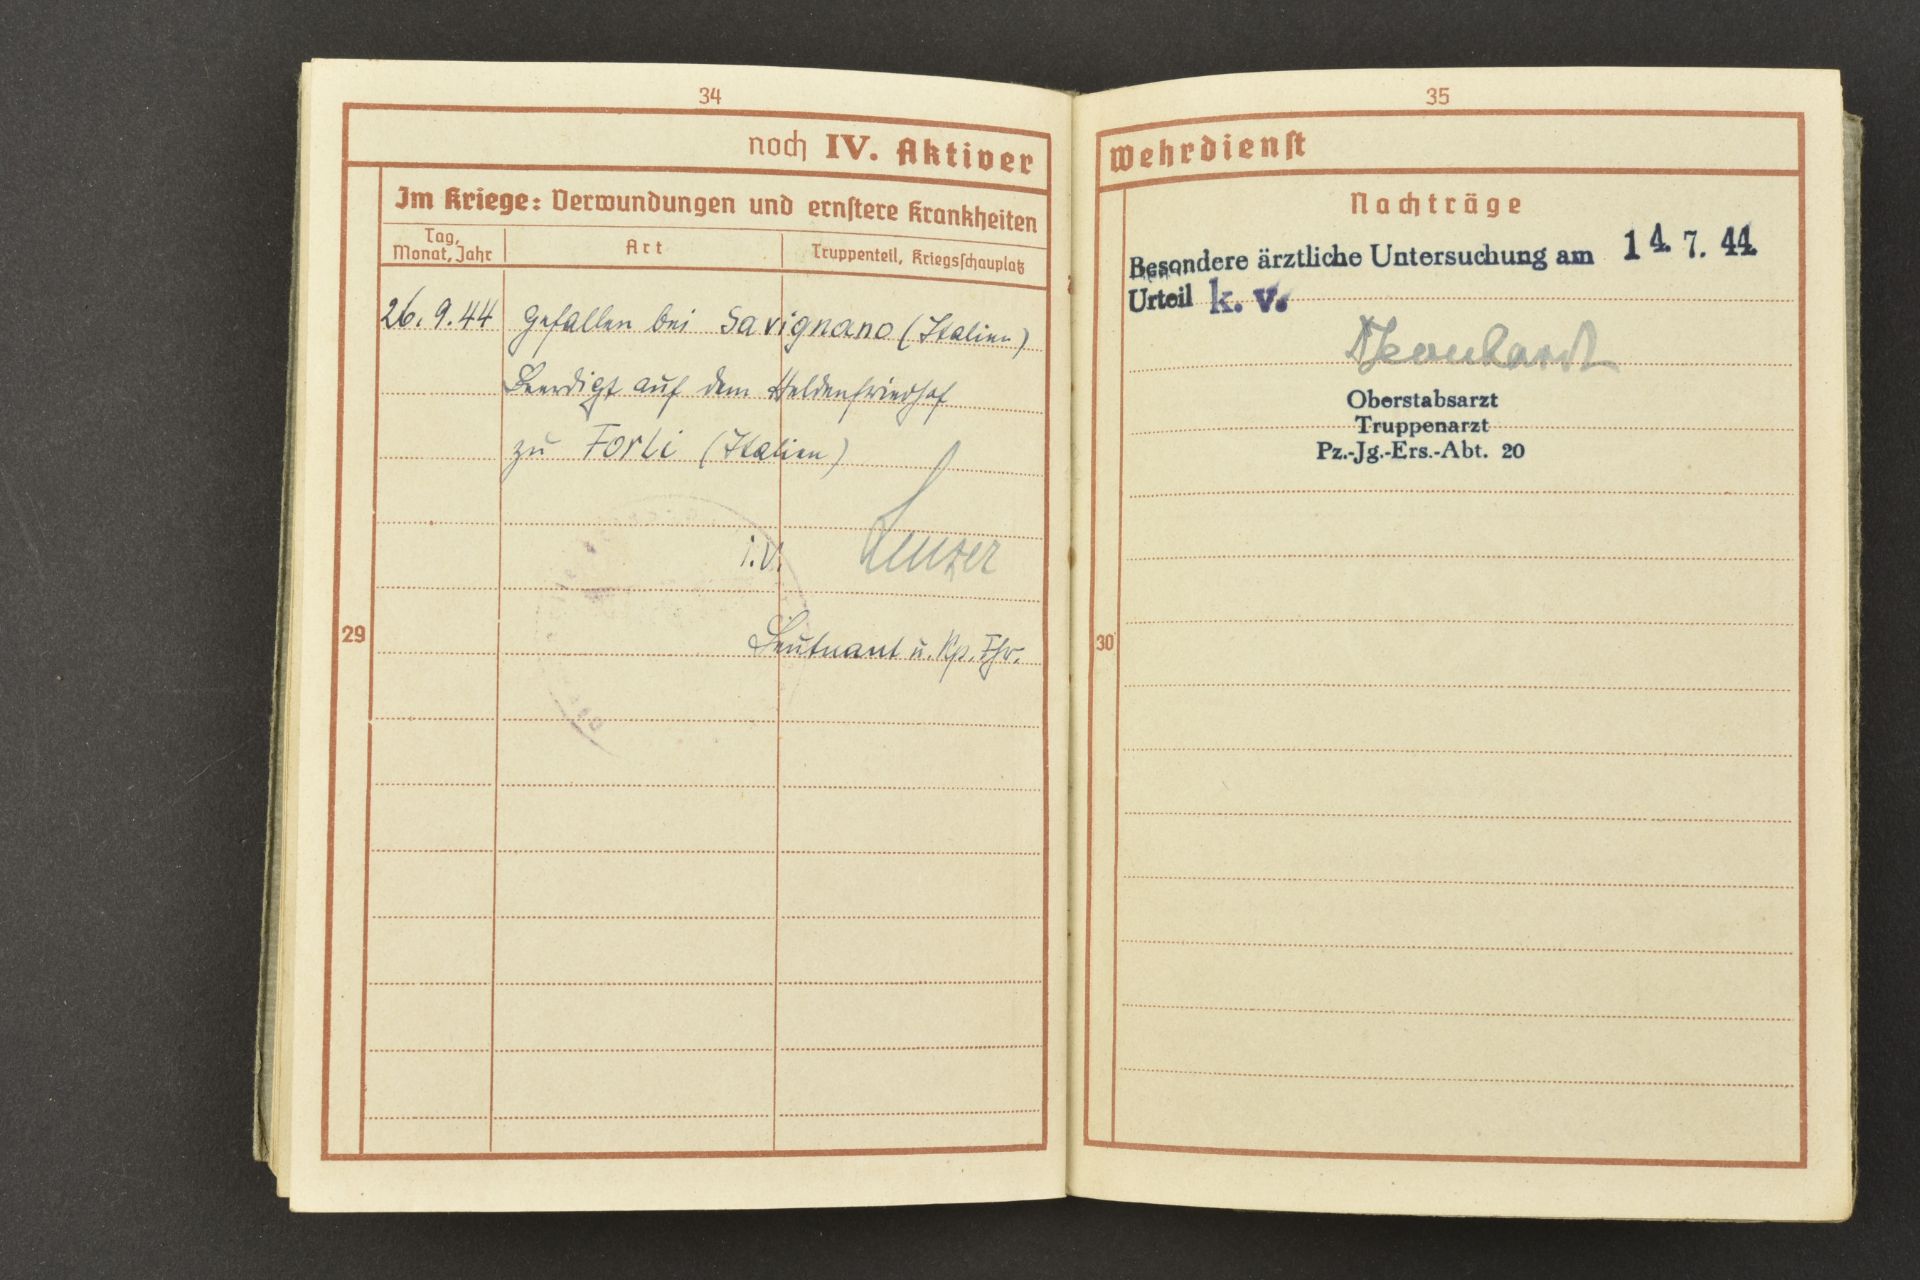 34
noch IV. Aktiver
Im Kriege: Verwundungen und ernstere Krankheiten
Tag, Monat, Jahr
Art
Truppenteil, Kriegsschauplatz
26.9.44 Gefallen bei Savignano (Italien)
Beerdigt auf dem Heldenfriedhof
zu Forli (Italien)
i.V.
Leutnant u. Kp. Fhr.
29
35
Wehrdienst
Nachträge
Besondere ärztliche Untersuchung am 14. 7. 44.
Urteil k. v.
Oberstabsarzt
Truppenarzt
Pz.-Jg.-Ers.-Abt. 20
30